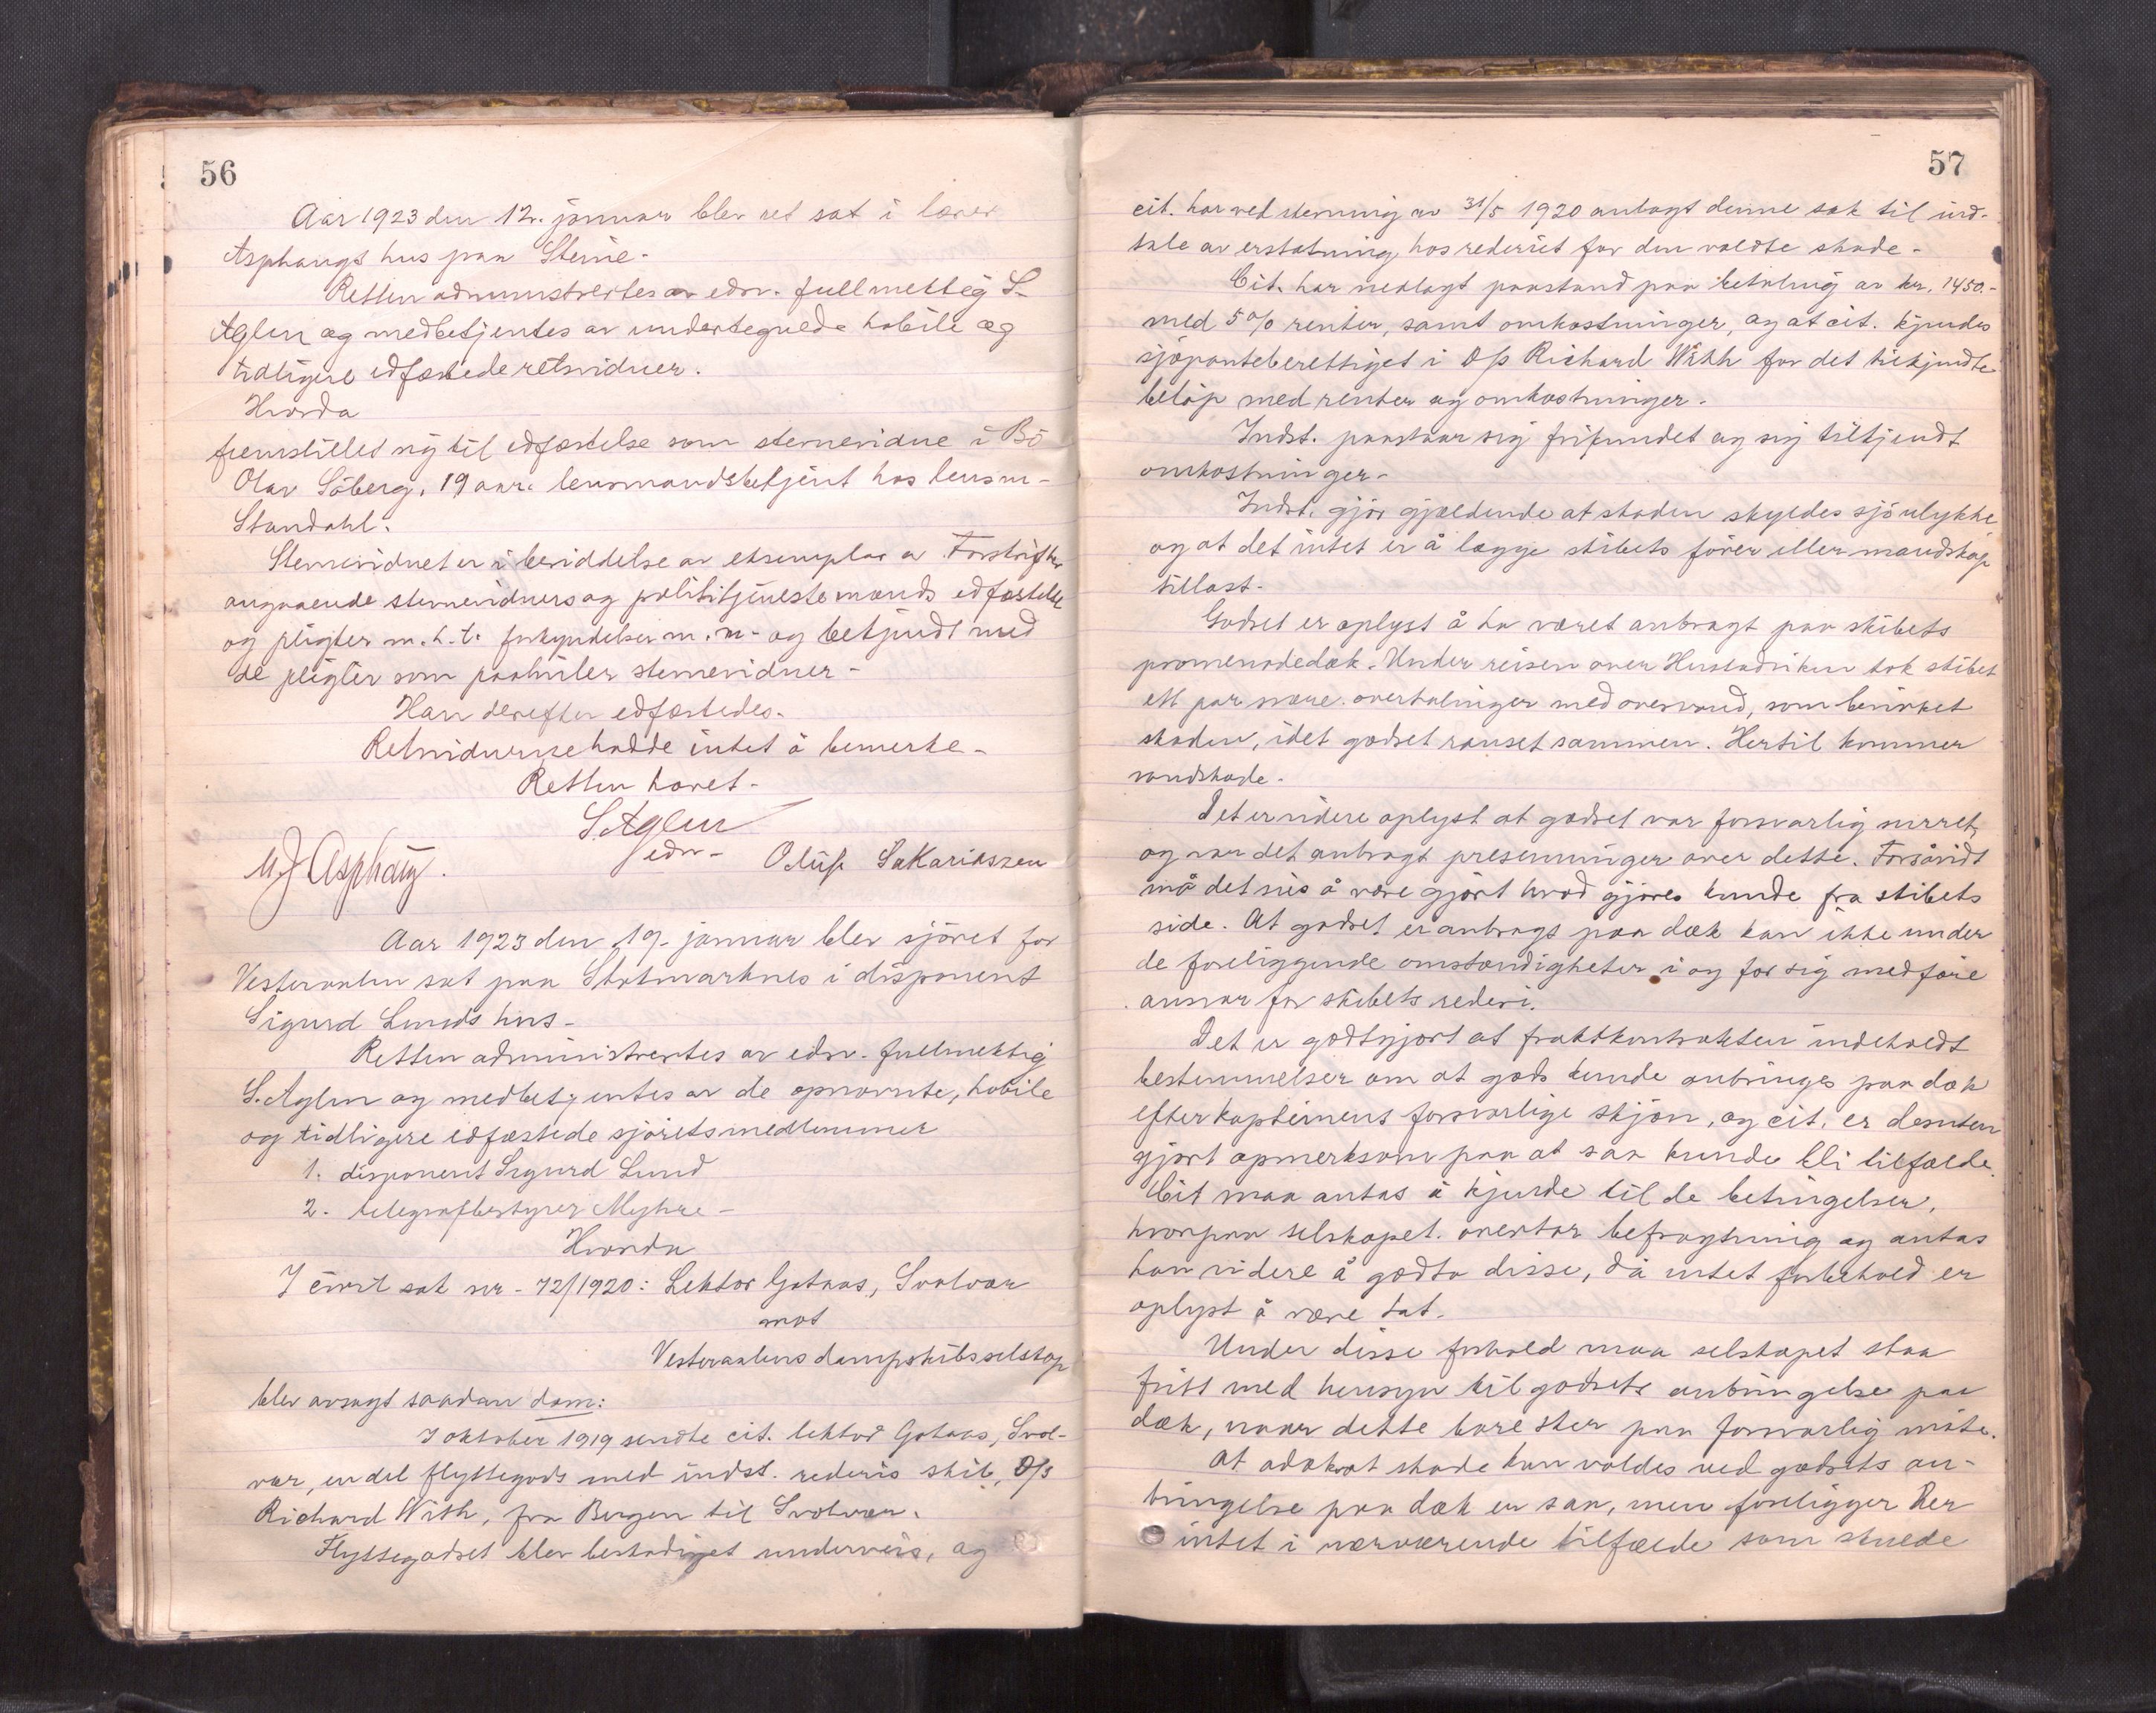 56
Aar 1923 den 12. januar blev ret sat i lærer
Asphaugs hus paa Steine.
Retten administrertes av edsv. fullmektig S.
Aglen og medbetjentes av undertegnede habile og
tidligere edfæstede retsvidner.
Hvorda
fremstillet sig til edfæstelse som stevnevidne i Bö
Olav Söberg, 19 aar. lensmandsbetjent hos lensm.
Standahl.
Stevnevidnet er i besiddelse av eksemplar av Forskrifter
angaaende stevnevidners og polititjenestemænds edfæstelse
og pligter m.h.t. forkyndelser m.m. og bekjendt med
de pligter som paahviler stevnevidner.
Han derefter edfæstedes.
Retsvidnerne hadde intet å bemerke.
Retten hævet.
S. Aglen
edsv.
M J Asphaug. Oluf Sakariassen
Aar 1923 den 19. januar blev sjöret for
Vesteraalen sat paa Stokmarknes i disponent
Sigurd Lunds hus.
Retten administrertes av edsv. fullmektig
S. Aglen og medbetjentes av de opnævnte, habile
og tidligere edfæstede sjöretsmedlemmer
1. disponent Sigurd Lund
2. telegrafbestyrer Myhre.
Hvorda
I civil sak nr. 72/1920: Lektor Gotaas, Svolvær
mot
Vesteraalens dampskibsselskap
blev avsagt saadan dom:
I oktober 1919 sendte cit. lektor Gotaas, Svol-
vær, en del flyttegods med indst. rederis skib, D/S
Richard With, fra Bergen til Svolvær.
Flyttegodset blev beskadiget underveis, og
57
cit. har ved stevning av 31/5 1920 anlagt denne sak til ind-
tale av erstatning hos rederiet for den voldte skade.
Cit. har nedlagt paastand paa betaling av kr. 1450.-
med 5% renter, samt omkostninger, og at cit. kjendes
sjöpanteberettiget i D/S Richard With for det tilkjendte
belöp med renter og omkostninger.
Indst. paastaar sig frifundet og sig tilkjendt
omkostninger.
Indst. gjör gjældende at skaden skyldes sjöulykke
og at det intet er å lægge skibets förer eller mandskap
tillast.
Godset er oplyst å ha været anbragt paa skibets
promenadedæk. Under reisen over Hustadviken tok skibet
ett par svære overhalinger med overvand, som bevirket
skaden, idet godset rauset sammen. Hertil kommer
vandskade.
Det er videre oplyst at godset var forsvarlig surret,
og var det anbragt presenninger over dette. Forsåvidt
må det sies å være gjort hvad gjöres kunde fra skibets
side. At godset er anbragt paa dæk kan ikke under
de foreliggende omstændigheter i og for sig medföre
ansvar for skibets rederi.
Det er godtgjort at fraktkontrakten indeholdt
bestemmelser om at gods kunde anbringes paa dæk
efter kapteinens forsvarlige skjön, og cit. er desuten
gjort opmerksom paa at saa kunde bli tilfælde.
Cit maa antas å kjende til de betingelser,
hvorpaa selskapet overtar befragtning og antas
han videre å godta disse, då intet forbehold er
oplyst å være tat.
Under disse forhold maa selskapet staa
fritt med hensyn til godsets anbringelse paa
dæk, naar dette bare sker paa forsvarlig måte.
At adækvat skade kan voldes ved godsets an-
bringelse paa dæk er saa, men foreligger her
intet i nærværende tilfælde som skulde